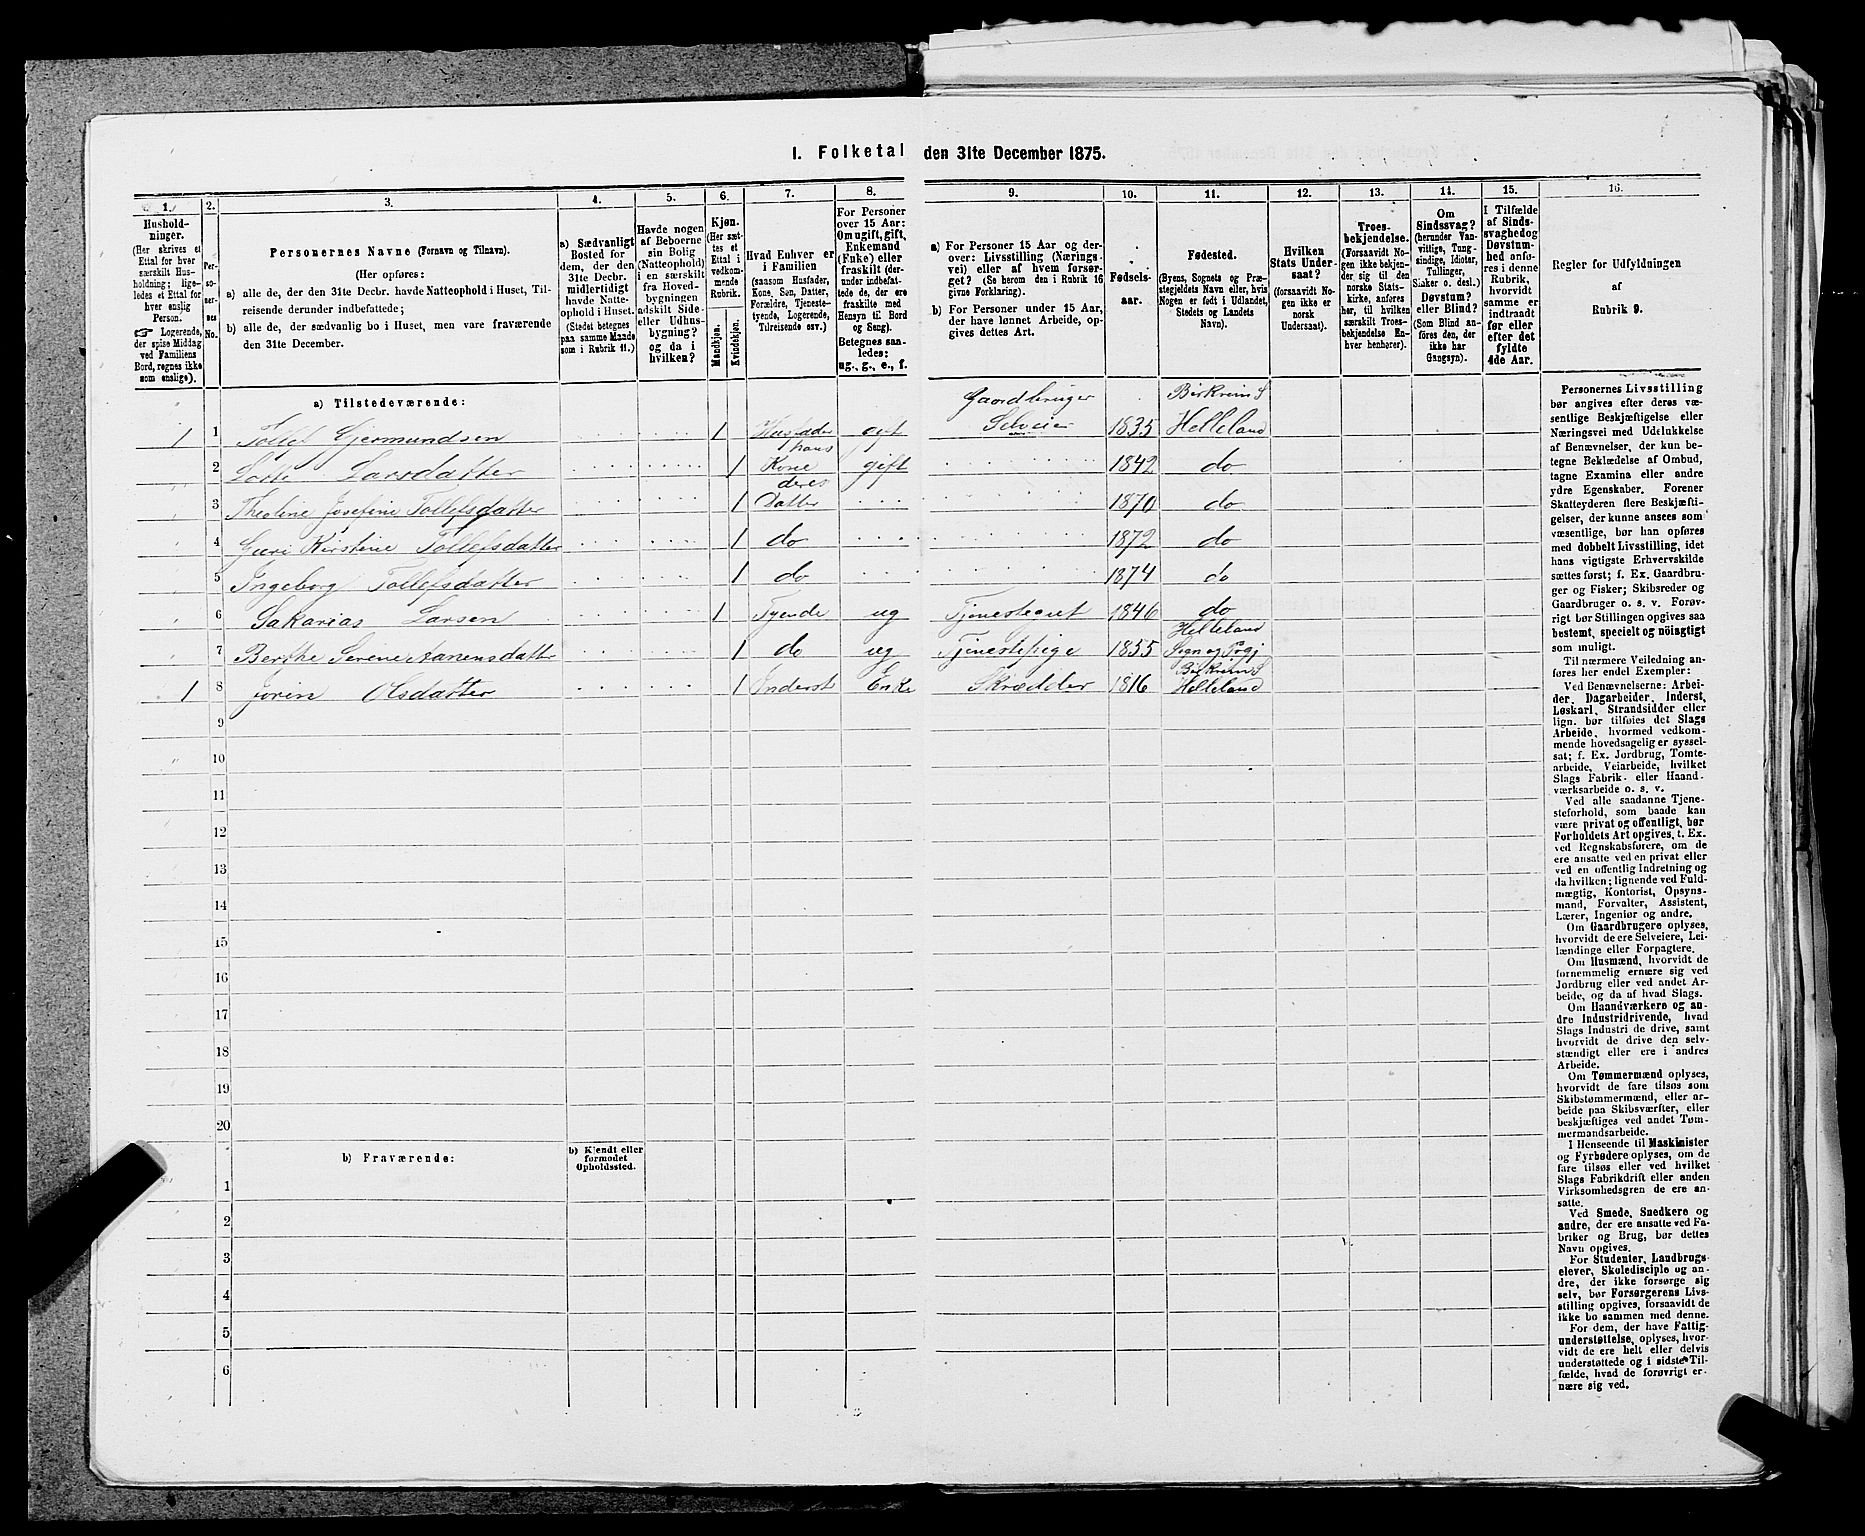 1. Folketal den 31te December 1875.
1. 2. 3. 4. 5. 6. 7. 8. 9. 10. 11. 12. 13. 14. 15. 16.
Hushold-
ninger.
(Her skrives et
Ettal for hver
særskilt Hus-
holdning; lige-
ledes et Ettal for
hver enslig
Person.
☞ Logerende,
der spise Middag
ved Familiens
Bord, regnes ikke
som enslige).
Per-
so-
ner-
nes
No.
Personernes Navne (Fornavn og Tilnavn).
(Her opføres:
a) alle de, der den 31te Decbr. havde Natteophold i Huset, Til-
reisende derunder indbefattede;
b) alle de, der sædvanlig bo i Huset, men vare fraværende
den 31te December.
a) Sædvanligt
Bosted for
dem, der den
31te Decbr.
midlertidigt
havde Natte-
ophold i Huset.
(Stedet betegnes
paa samme Maade
som i Rubrik 11.)
Havde nogen
af Beboerne
sin Bolig
(Natteophold)
i en særskilt
fra Hoved-
bygningen
adskilt Side-
eller Udhus-
bygning?
og da i
hvilken?
Kjøn.
(Her sæt-
tes et
Ettal i
vedkom-
mende
Rubrik.
Mandkjøn.
Kvindekjøn.
Hvad Enhver er
i Familien
(saasom Husfader,
Kone, Søn, Datter,
Forældre, Tjeneste-
tyende, Logerende,
Tilreisende osv.)
For Personer
over 15 Aar:
Om ugift, gift,
Enkemand
(Enke) eller
fraskilt (der-
under indbefat-
tede de, der ere
fraskilte med
Hensyn til Bord
og Seng).
Betegnes saa-
ledes:
ug., g., e., f.
a) For Personer 15 Aar og der-
over: Livsstilling (Nærings-
vei) eller af hvem forsør-
get? (Se herom den i Rubrik 16
givne Forklaring).
b) For Personer under 15 Aar,
der have lønnet Arbeide, op-
gives dettes Art.
Fødsels-
aar.
Fødested.
(Byens, Sognets og Præ-
stegjeldets Navn eller, hvis
Nogen er født i Udlandet,
Stedets og Landets
Navn).
Hvilken
Stats Under-
saat?
(forsaavidt No-
gen ikke er
norsk
Undersaat).
Troes-
bekjendelse.
(Forsaavidt No-
gen ikke bekjen-
der sig til den
norske Stats-
kirke, anføres
her, til hvilken
særskilt Troes-
bekjendelse En-
hver henhører).
Om
Sindssvag?
(herunder Van-
vittige, Tung-
sindige, Idioter,
Tullinger,
Sinker o. desl.)
Døvstum?
eller Blind?
(Som Blind an-
føres den, der
ikke har
Gangsyn).
I Tilfælde
af Sinds-
svaghed og
Døvstum-
hed anfø-
res i denne
Rubrik,
hvorvidt
samme er
indtraadt
før eller
efter det
fyldte
4de Aar.
Regler for Udfyldningen
af
Rubrik 9.
a) Tilstedeværende:
1 1 Tollef Gjermundsen 1 Husfader gift Gaardbruger Selveier 1835 Birkrem S Helleland
2 Larsdatter 1 hans Kone gift 1842 do
3 Theoline Josefine Tollefsdatter 1 deres Datter 1870 do
4 Guri Kirstine Tollefsdatter 1 do 1872 do
5 Ingeborg Tollefsdatter 1 do 1874 do
6 Sakarias Larsen 1 Tyende ug Tjenestegut 1846 do
7 Berthe Serene Aanensdatter 1 do ug Tjenestepige 1855 Helleland Sogn og Prgj
1 8 Jorin Olsdatter 1 Inderst Enke Skrædder 1816 Birkrem S Helleland
9
10
11
12
13
14
15
16
17
18
19
20
b) Fraværende:
b) Kjendt eller
formodet
Opholdssted.
1
2
3
4
5
6
Personernes Livsstilling
bør angives efter deres væ-
sentlige Beskjæftigelse eller
Næringsvei med Udelukkelse
af Benævnelser, der kun be-
tegne Beklædelse af Ombud,
tagne Examina eller andre
ydre Egenskaber. Forener
Skatteyderen flere Beskjæfti-
gelser, der kunne ansees som
væsentlige, bør han opføres
med dobbelt Livsstilling, idet
hans vigtigste Erhvervskilde
sættes først; f. Ex. Gaardbru-
ger og Fisker; Skibsreder og
Gaardbruger o. s. v. Forøv-
rigt bør Stillingen opgives saa
bestemt, specielt og nøiagtigt
som muligt.
Til nærmere Veiledning an-
føres her endel Exempler:
Ved Benævnelserne: Arbei-
der, Dagarbeider, Inderst,
Løskarl, Strandsidder eller
lign. bør tilføies det Slags
Arbeide, hvormed vedkom-
mende hovedsagelig er syssel-
sat; f. Ex. Jordbrug, Tomte-
arbeide, Veiarbeide, hvilket
Slags Fabrik- eller Haand-
værksarbeide o. s. v.
Ved alle saadanne Tjene-
steforhold, som baade kan
være privat og offentligt, bør
Forholdets Art opgives, t. Ex.
ved Regnskabsførere, om de
ere ansatte ved en privat eller
ved en offentlig Indretning og
da hvilken; lignende ved Fuld-
mægtig, Kontorist, Opsyns-
mand, Forvalter, Assistent,
Lærer, Ingeniør og andre.
Om Gaardbrugere oplyses,
hvorvidt de ere Selveiere, Lei-
lændinge eller Forpagtere.
Om Husmænd, hvorvidt de
fornemmelig ernære sig ved
Jordbrug eller ved andet Ar-
beide, og da af hvad Slags.
Om Haandværkere og an-
dre Industridrivende, hvad
Slags Industri de drive, samt
hvorvidt de drive den selv-
stændigt eller ere i andres
Arbeide.
Om Tømmermænd oplyses,
hvorvidt de fare tilsøs som
Skibstømmermænd, eller ar-
beide paa Skibsværfter, eller
beskjæftiges ved andet Tøm-
mermandsarbeide.
I Henseende til Maskinister
og Fyrbødere oplyses, om de
fare tilsøs eller ved hvilket
Slags Fabrikdrift eller anden
Virksomhedsgren de ere an-
satte.
Ved Smede, Snedkere og
andre, der ere ansatte ved Fa-
briker og Brug, bør dettes
Navn opgives.
For Studenter, Landbrugs-
elever, Skoledisciple og an-
dre, der ikke forsørge sig
selv, bør Forsørgerens Livs-
stilling opgives, forsaavidt de
ikke bo sammen med denne.
For dem, der have Fattig-
understøttelse, oplyses, hvor-
vidt de ere helt eller delvis
understøttede og i sidste Til-
fælde, hvad de forøvrigt er-
nære sig ved.